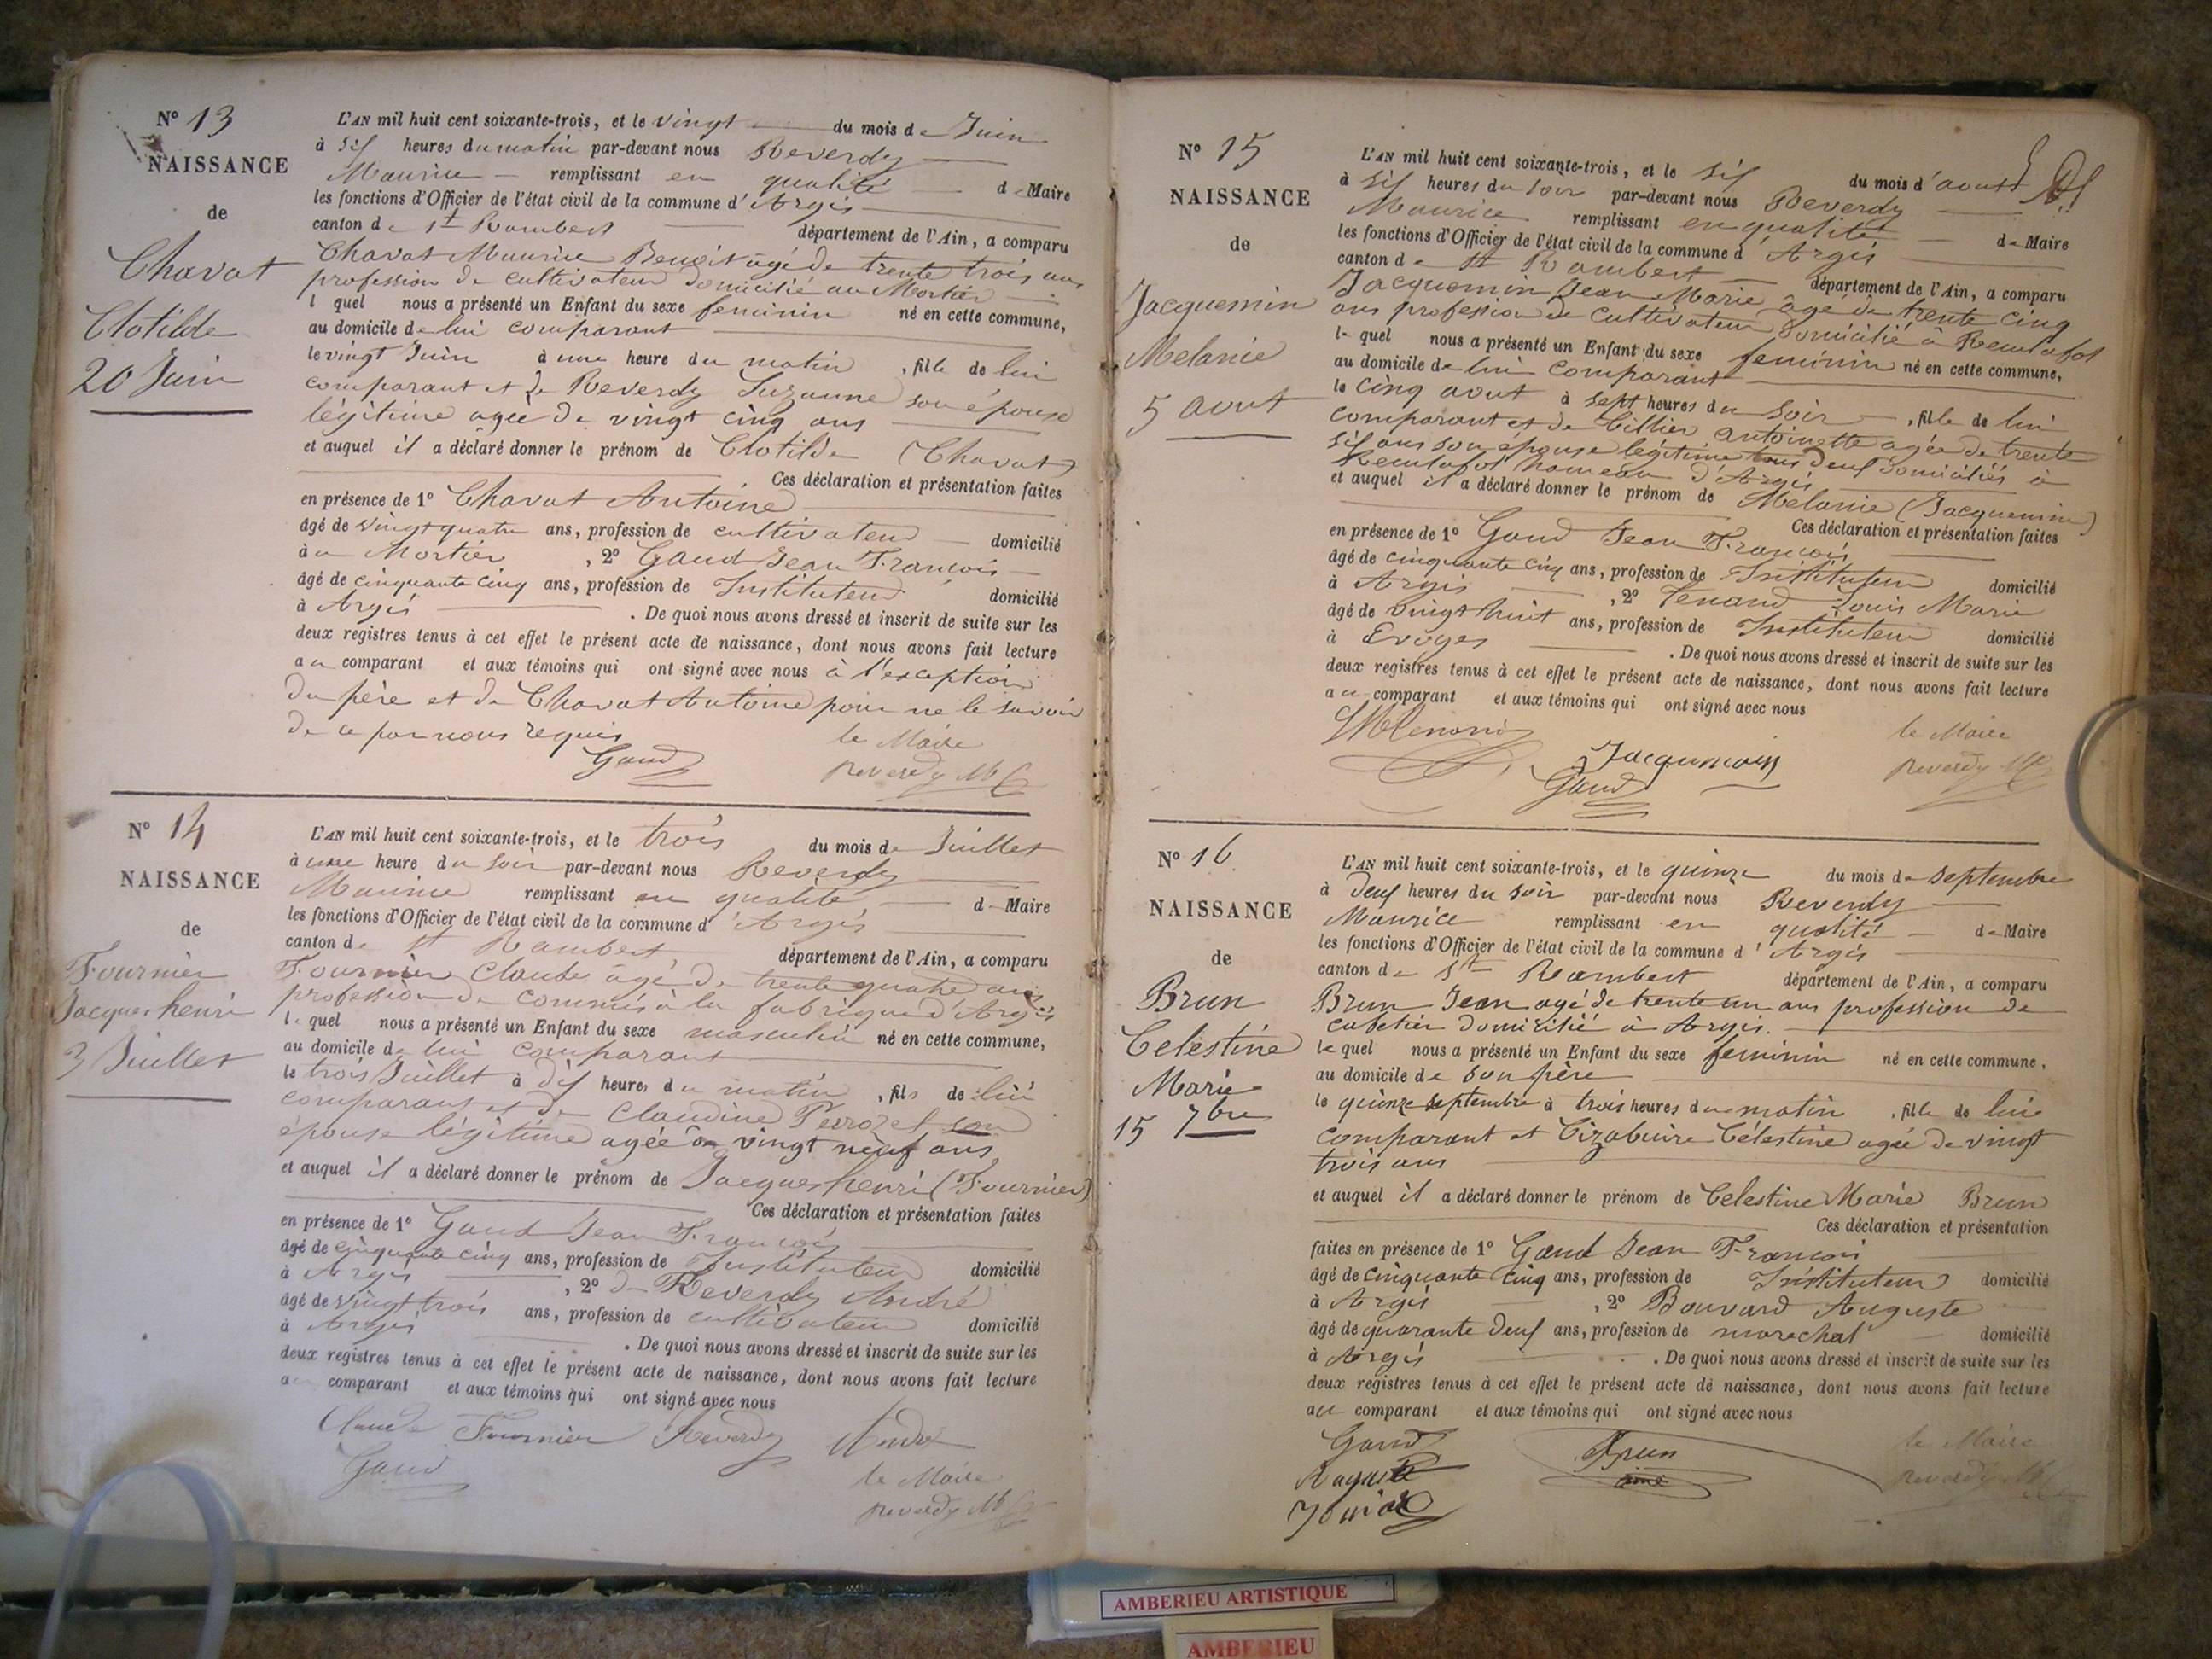 N° 13
NAISSANCE
de
Chavat
Clotilde
20 Juin
L'AN mil huit cent soixante-trois, et le vingt du mois de Juin
à six heures du matin par-devant nous Reverdy
Maurice remplissant en qualité de Maire
les fonctions d'Officier de l'état civil de la commune d'Argis
canton de St Rambert département de l'Ain, a comparu
Chavat Maurice Benoit agé de trente trois ans
profession de cultivateur domicilié au Mortier
lequel nous a présenté un Enfant du sexe feminin né en cette commune,
au domicile de lui comparant
le vingt Juin à une heure du matin, fille de lui
comparant et de Reverdy Suzanne son épouse
légitime agée de vingt cinq ans
et auquel il a déclaré donner le prénom de Clotilde (Chavat)
Ces déclaration et présentation faites
en présence de 1° Chavat Antoine
âgé de vingt quatre ans, profession de cultivateur domicilié
à au Mortier, 2° Gaud Jean François
âgé de cinquante cinq ans, profession de Instituteur domicilié
à Argis. De quoi nous avons dressé et inscrit de suite sur les
deux registres tenus à cet effet le présent acte de naissance, dont nous avons fait lecture
au comparant et aux témoins qui ont signé avec nous à l'exception
du père et de Chavat Antoine pour ne le savoir
de ce par nous requis
Gaud le Maire
reverdy M
N° 14
NAISSANCE
de
Fournier
Jacques henri
3 Juillet
L'AN mil huit cent soixante-trois, et le trois du mois de Juillet
à une heure du soir par-devant nous Reverdy
Maurice remplissant en qualité de Maire
les fonctions d'Officier de l'état civil de la commune d'Argis
canton de St Rambert département de l'Ain, a comparu
Fournier Claude âgé de trente quatre ans
profession de commis à la fabrique d'Argis
lequel nous a présenté un Enfant du sexe masculin né en cette commune,
au domicile de lui comparant
le trois Juillet à dix heures du matin, fils de lui
comparant et de Claudine Perrozet son
épouse légitime agée de vingt neuf ans
et auquel il a déclaré donner le prénom de Jacques henri (Fournier)
Ces déclaration et présentation faites
en présence de 1° Gaud Jean François
âgé de cinquante cinq ans, profession de Instituteur domicilié
à Argis, 2° de Reverdy André
âgé de vingt trois ans, profession de cultivateur domicilié
à Argis. De quoi nous avons dressé et inscrit de suite sur les
deux registres tenus à cet effet le présent acte de naissance, dont nous avons fait lecture
au comparant et aux témoins qui ont signé avec nous
Claude Fournier Reverdy André
Gaud le Maire
reverdy M
N° 15
NAISSANCE
de
Jacquemin
Melanie
5 avout
L'AN mil huit cent soixante-trois, et le six du mois d'avout
à six heures du soir par-devant nous Reverdy
Maurice remplissant en qualité de Maire
les fonctions d'Officier de l'état civil de la commune d'Argis
canton de St Rambert département de l'Ain, a comparu
Jacquemin Jean Marie âgé de trente cinq
ans profession de cultivateur domicilié à Reculafol
lequel nous a présenté un Enfant du sexe feminin né en cette commune,
au domicile de lui comparant
le cinq avout à sept heures du soir, fille de lui
comparant et de Tillier antoinette agée de trente
six ans son épouse légitime tous deux domiciliés à
Reculafol hameau d'Argis
et auquel il a déclaré donner le prénom de Melanie (Jacquemin)
Ces déclaration et présentation faites
en présence de 1° Gaud Jean François
âgé de cinquante cinq ans, profession de Instituteur domicilié
à Argis, 2° Tenand Louis Marie
âgé de vingt huit ans, profession de Instituteur domicilié
à Evoges. De quoi nous avons dressé et inscrit de suite sur les
deux registres tenus à cet effet le présent acte de naissance, dont nous avons fait lecture
au comparant et aux témoins qui ont signé avec nous
le Maire
Jacquemin reverdy M
Gaud
N° 16
NAISSANCE
de
Brun
Celestine
Marie
15 7bre
L'AN mil huit cent soixante-trois, et le quinze du mois de septembre
à deux heures du soir par-devant nous Reverdy
Maurice remplissant en qualité de Maire
les fonctions d'Officier de l'état civil de la commune d'Argis
canton de St Rambert département de l'Ain, a comparu
Brun Jean agé de trente un ans profession de
cafetier domicilié à Argis.
lequel nous a présenté un Enfant du sexe feminin né en cette commune,
au domicile de son père
le quinze septembre à trois heures du matin, fille de lui
comparant et Célestine agée de vingt
trois ans
et auquel il a déclaré donner le prénom de Celestine Marie Brun
Ces déclaration et présentation
faites en présence de 1° Gaud Jean François
âgé de cinquante cinq ans, profession de Instituteur domicilié
à Argis, 2° Bouvard Auguste
âgé de quarante deux ans, profession de marechal domicilié
à Argis. De quoi nous avons dressé et inscrit de suite sur les
deux registres tenus à cet effet le présent acte de naissance, dont nous avons fait lecture
au comparant et aux témoins qui ont signé avec nous
Gaud Brun le Maire
reverdy M
AMBERIEU ARTISTIQUE
AMBERIEU